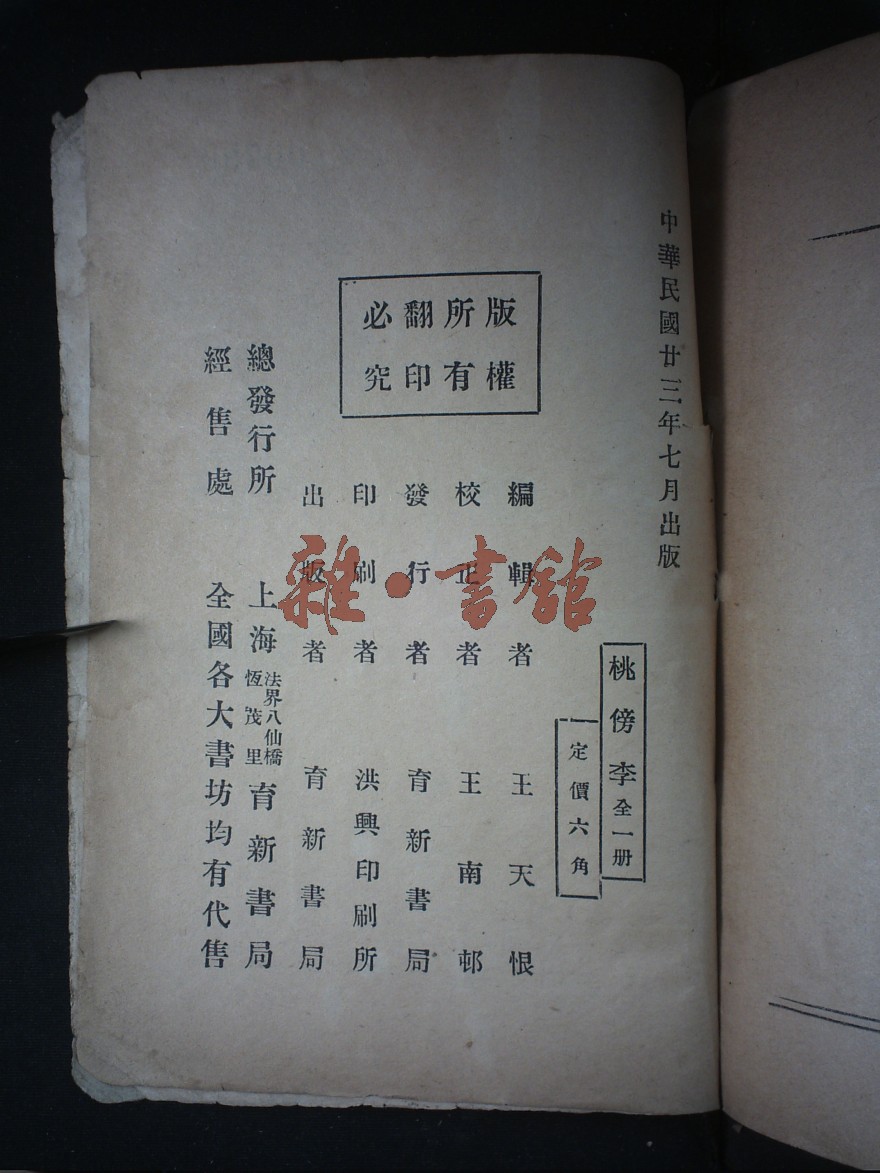 中華民國廿三年七月出版
桃傍李全一册
定價六角
版權
所有
翻印
必究
編輯者 王天恨
校正者 王南邨
發行者 育新書局
印刷者 洪興印刷所
出版者 育新書局
總發行所 上海法界八仙橋恆茂里育新書局
經售處 全國各大書坊均有代售
雜·書館